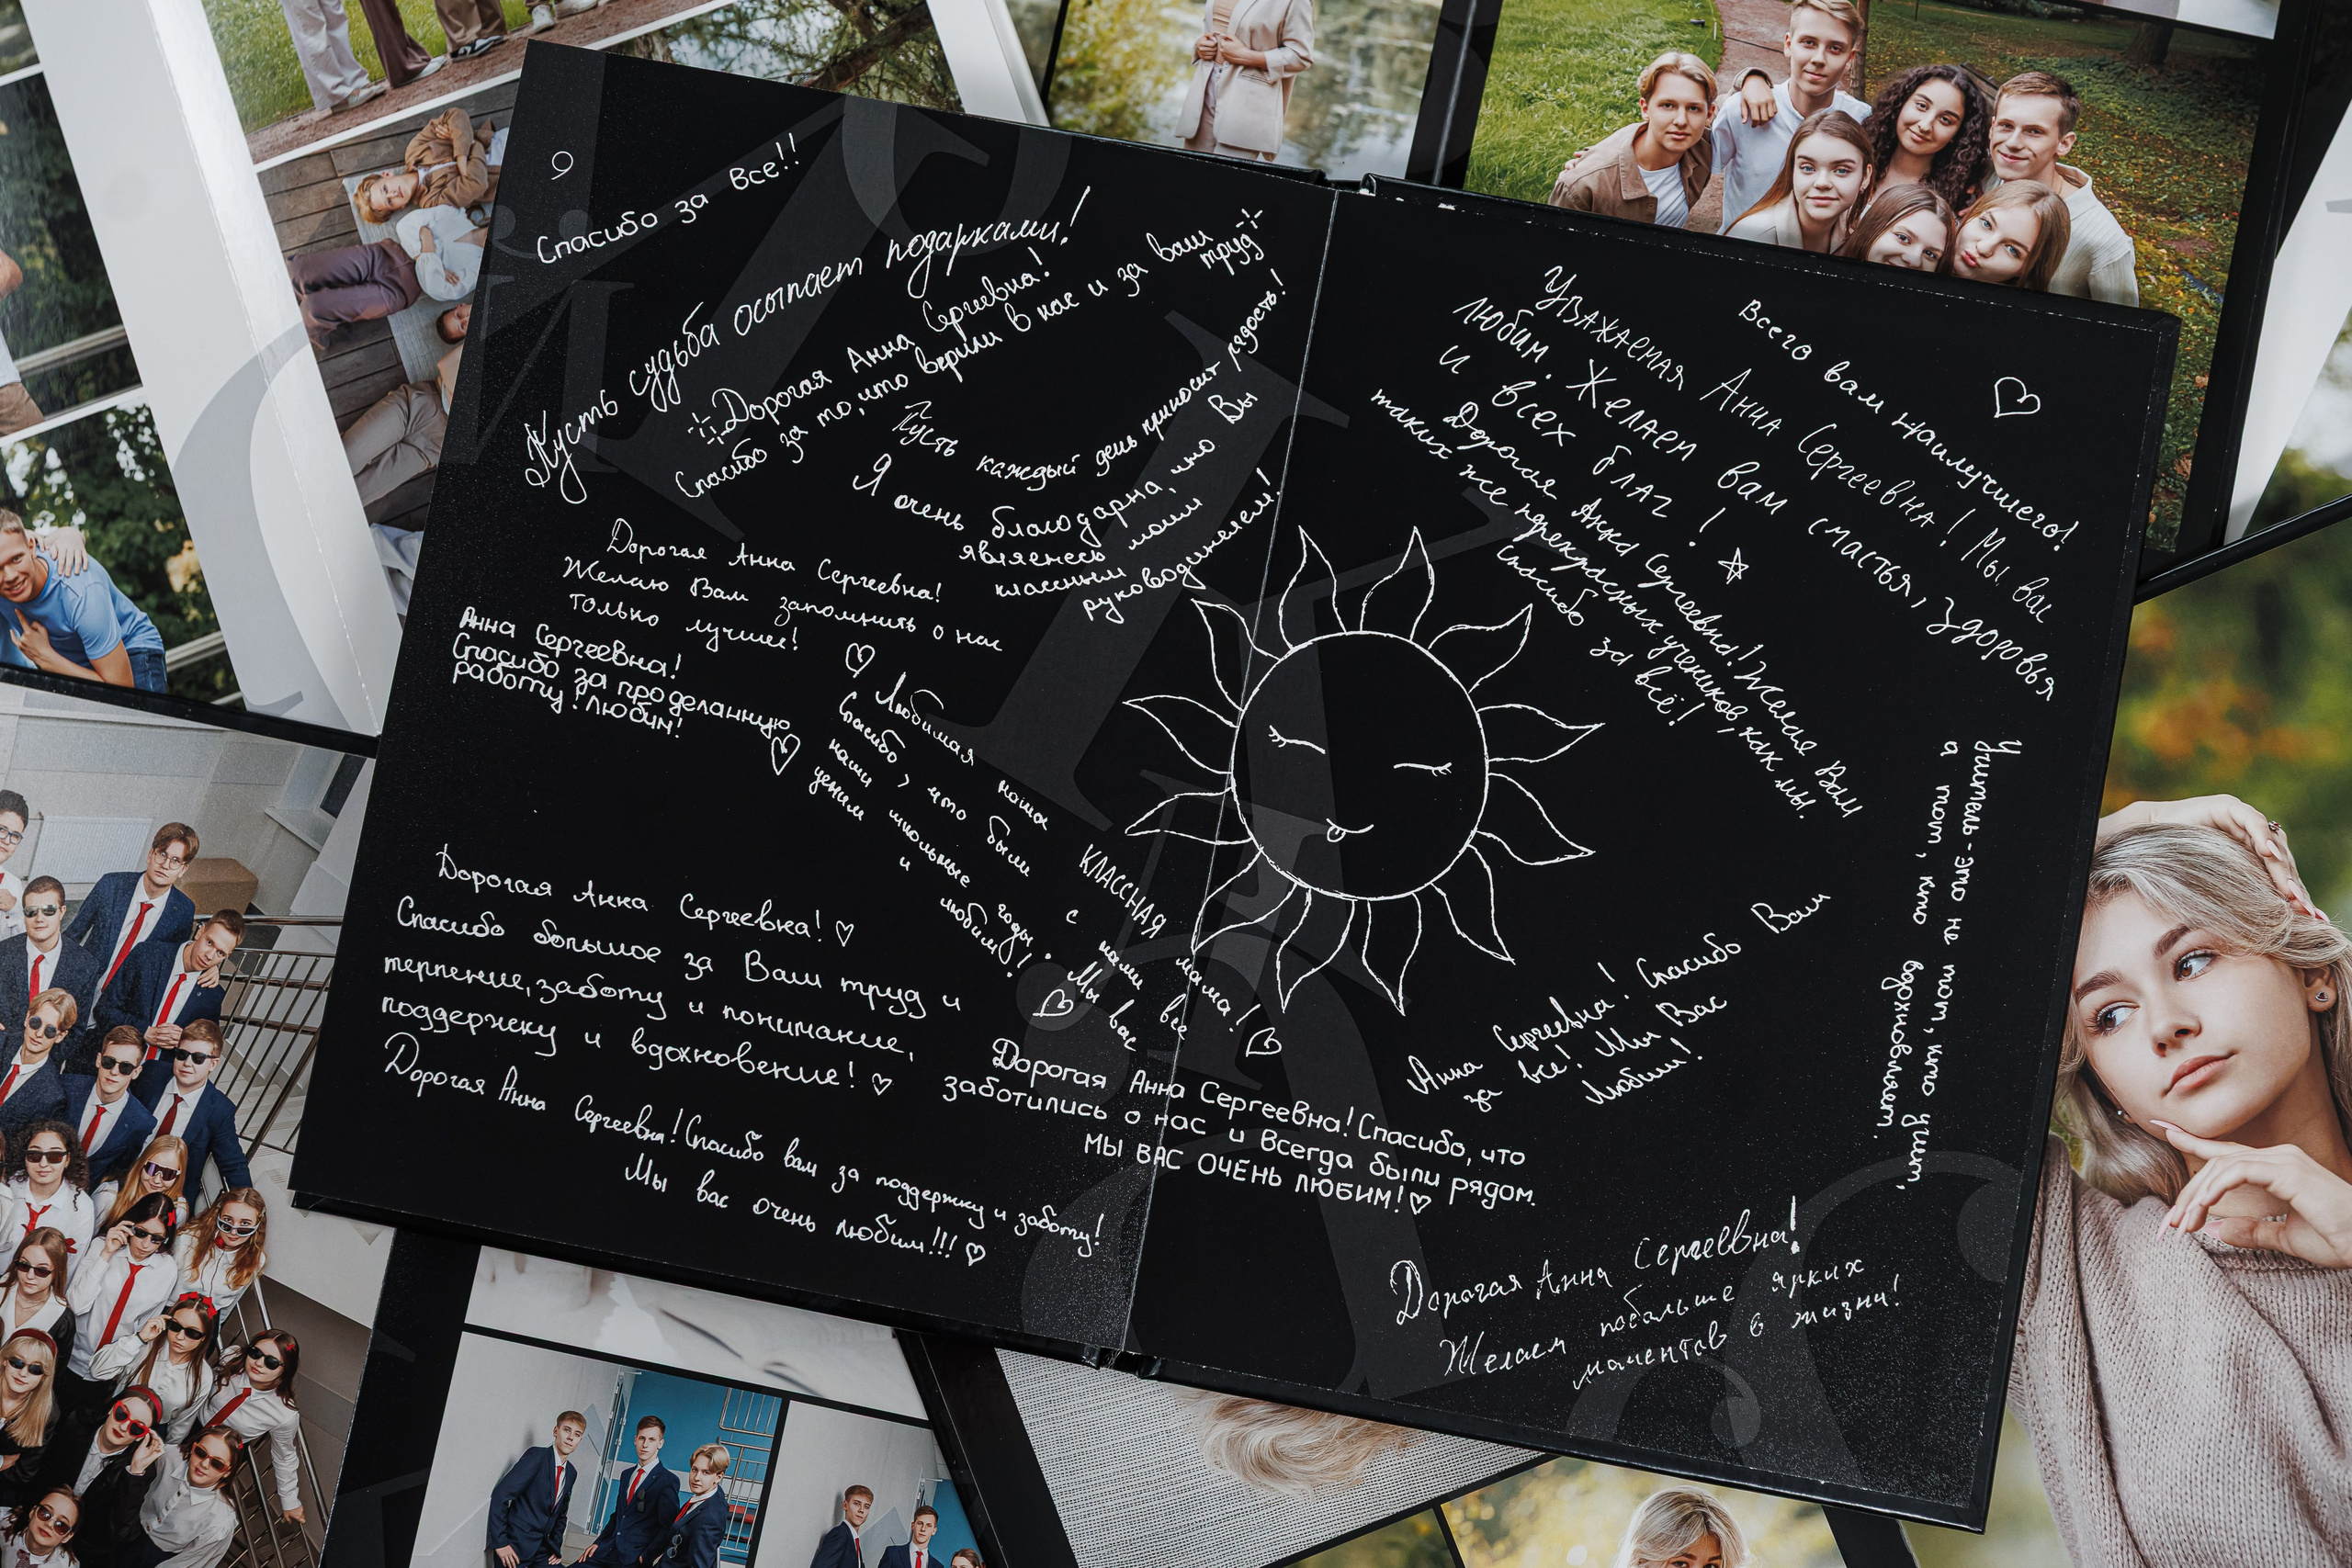 9
Спасибо за все!!
Пусть судьба осыпает подарками!
Дорогая Анна Сергеевна!
Спасибо за то, что верили в нас и за ваш
труд
Пусть каждый день приносит радость!
Я очень благодарна, что Вы
являетесь моим
классным
руководителем!
Дорогая Анна Сергеевна!
Желаю Вам запомнить о нас
только лучшее!
Анна Сергеевна!
Спасибо за проделанную
работу! Любим!
Любимая наша КЛАССНАЯ мама!
Спасибо, что были с нами все
наши школьные годы. Мы вас
ценим и любим!
Дорогая Анна Сергеевна!
Спасибо большое за Ваш труд и
терпение, заботу и понимание,
поддержку и вдохновение!
Дорогая Анна Сергеевна! Спасибо вам за поддержку и заботу!
Мы вас очень любим!!!
Дорогая Анна Сергеевна! Спасибо, что
заботились о нас и всегда были рядом.
МЫ ВАС ОЧЕНЬ ЛЮБИМ!
Всего вам наилучшего!
Уважаемая Анна Сергеевна! Мы вас
любим. Желаем вам счастья, здоровья
и всех благ!
Дорогая Анна Сергеевна! Желаю Вам
таких же прекрасных учеников, как мы.
Спасибо за всё!
Учитель - это не тот, кто учит,
а тот, кто вдохновляет.
Анна Сергеевна! Спасибо Вам
за все! Мы Вас
Любим!
Дорогая Анна Сергеевна!
Желаем побольше ярких
моментов в жизни!